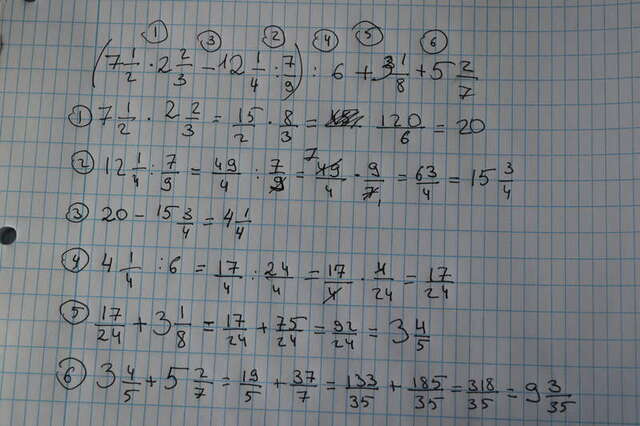 ① ③ ② ④ ⑤ ⑥
(7 1/2 · 2 2/3 - 12 1/4 : 7/9) : 6 + 3 1/8 + 5 2/7
① 7 1/2 · 2 2/3 = 15/2 · 8/3 = 120/6 = 20
② 12 1/4 : 7/9 = 49/4 : 7/9 = 7 49/4 · 9/7 1 = 63/4 = 15 3/4
③ 20 - 15 3/4 = 4 1/4
④ 4 1/4 : 6 = 17/4 : 24/4 = 17/4 · 4/24 = 17/24
⑤ 17/24 + 3 1/8 = 17/24 + 75/24 = 92/24 = 3 4/5
⑥ 3 4/5 + 5 2/7 = 19/5 + 37/7 = 133/35 + 185/35 = 318/35 = 9 3/35